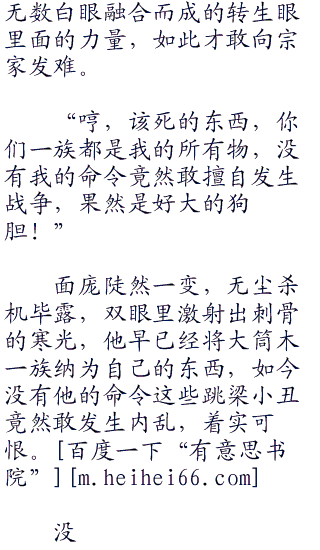 无数白眼融合而成的转生眼
里面的力量，如此才敢向宗
家发难。
“哼，该死的东西，你
们一族都是我的所有物，没
有我的命令竟然敢擅自发生
战争，果然是好大的狗
胆！”
面庞陡然一变，无尘杀
机毕露，双眼里激射出刺骨
的寒光，他早已经将大筒木
一族纳为自己的东西，如今
没有他的命令这些跳梁小丑
竟然敢发生内乱，着实可
恨。[百度一下“有意思书
院”][m.heihei66.com]
没